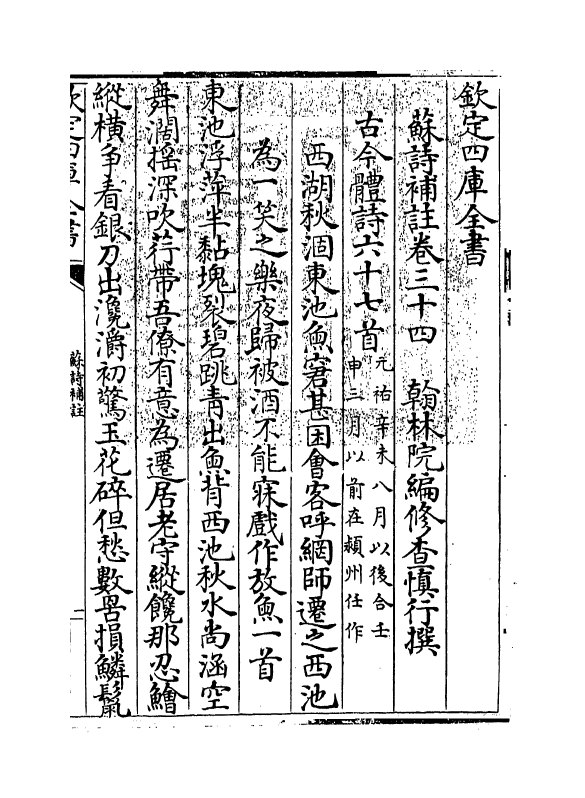 欽定四庫全書
蘇詩補註卷三十四　翰林院編修查慎行撰
古今體詩六十七首元祐辛未八月以後合壬
申三月以前在潁州任作
西湖秋涸東池魚窘甚因會客呼網師遷之西池
為一笑之樂夜歸被酒不能寐戲作放魚一首
東池浮萍半黏塊裂碧跳青出魚背西池秋水尚涵空
舞濶揺深吹荇帶吾僚有意為遷居老守縱饞那忍鱠
縱横争看銀刀出瀺灂初驚玉花碎但愁數罟損鱗鬛
欽定四庫全書
蘇詩補註
二